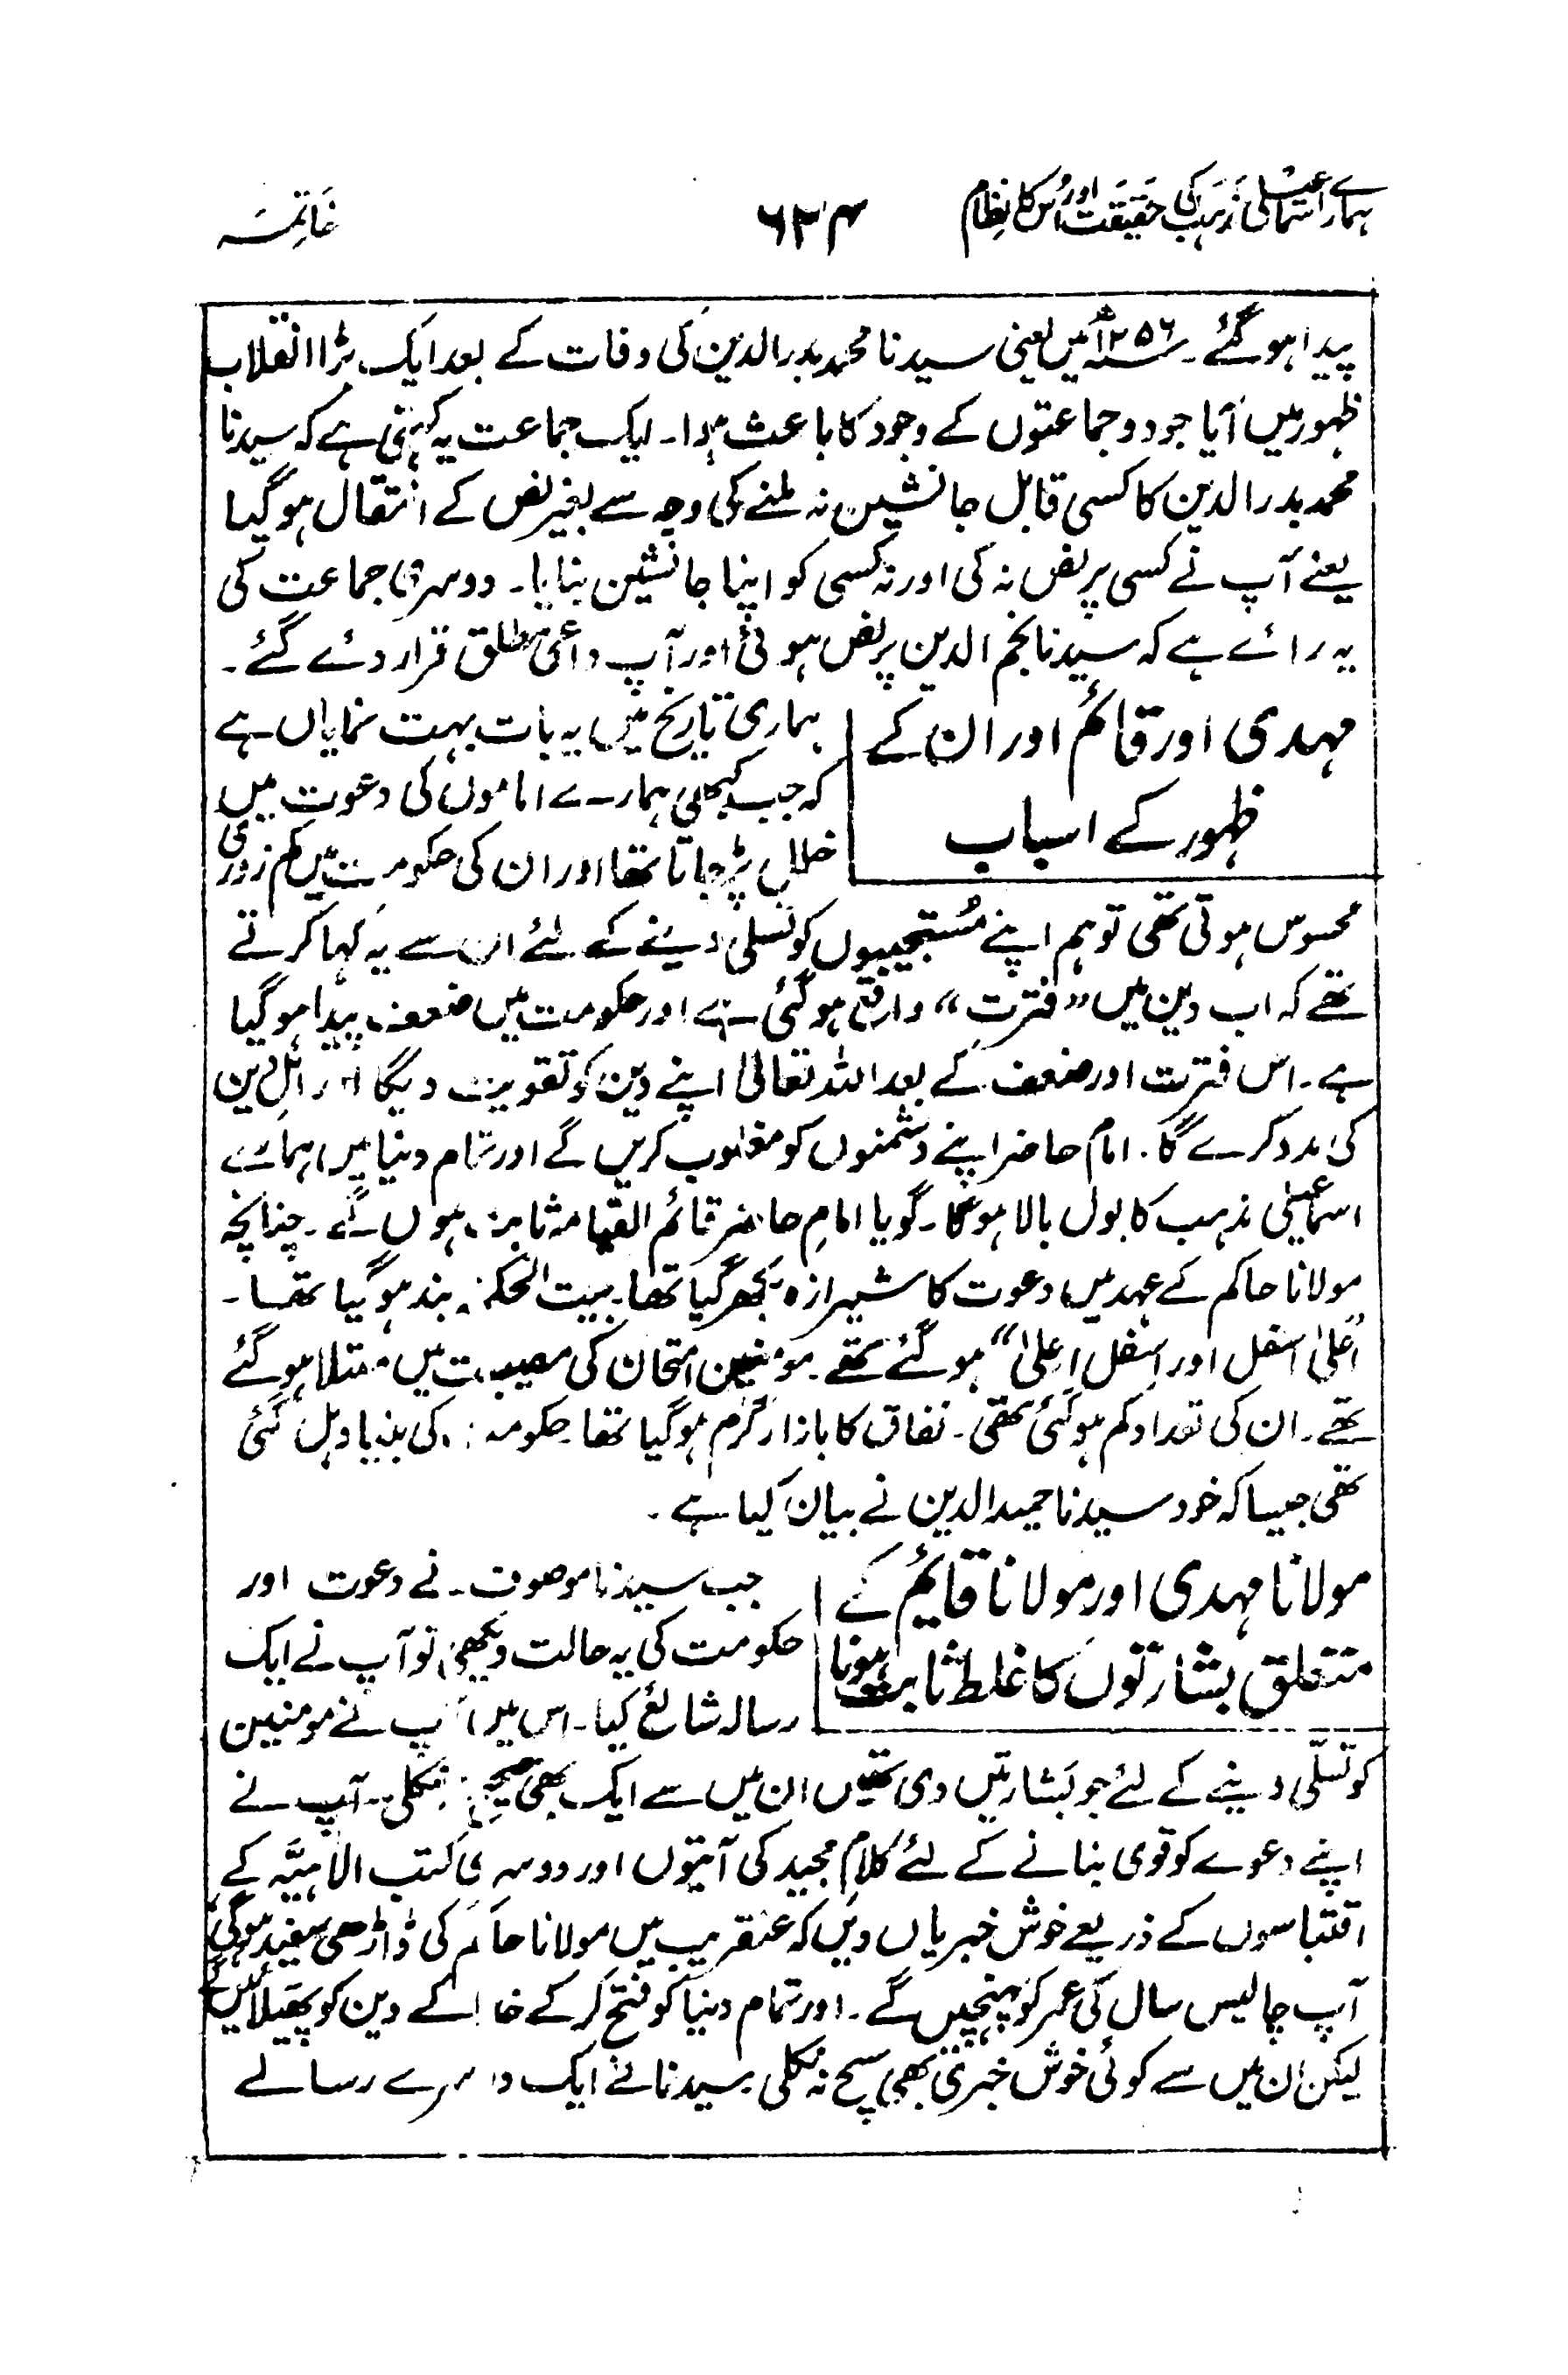 ہمارے اسماعیلی مذہب کی حقیقت اور اُس کا نظام
۶۲۴
خاتمہ
پیدا ہوگئے ۔ ۱۲۵۶ھ میں یعنی سیدنا محمد بدرالدین کی وفات کے بعد ایک بڑا انقلاب
ظہور میں آیا جو دو جماعتوں کے وجود کا باعث ہوا ۔ ایک جماعت یہ کہتی ہے کہ سیدنا
محمد بدرالدین کا کسی قابل جانشین نہ ملنے کی وجہ سے بغیر نص کے انتقال ہوگیا
یعنے آپ نے کسی پر نص نہ کی اور نہ کسی کو اپنا جانشین بنایا ۔ دوسری جماعت کی
یہ رائے ہے کہ سیدنا نجم الدین پر نص ہوئی اور آپ داعی مطلق قرار دئے گئے ۔
مہدی اور قائم اور ان کے
ظہور کے اسباب
ہماری تاریخ میں یہ بات بہت نمایاں ہے
کہ جب کبھی ہمارے اماموں کی دعوت میں
خلل پڑجاتا تھا اور ان کی حکومت میں کم زوری
محسوس ہوتی تھی تو ہم اپنے مُستجیبوں کو تسلی دینے کے لئے ان سے یہ کہا کرتے
تھے کہ اب دین میں ”فترت“ واقع ہوگئی ہے اور حکومت میں ضعف پیدا ہوگیا
ہے ۔ اس فترت اور ضعف کے بعد اللہ تعالیٰ اپنے دین کو تقویت دیگا اور اہلِ دین
کی مدد کرے گا ۔ امام حاضر اپنے دشمنوں کو مغلوب کریں گے اور تمام دنیا میں ہمارے
اسماعیلی مذہب کا بول بالا ہوگا ۔ گویا امامِ حاضر قائم القیامہ ثابت ہوں گے ۔ چنانچہ
مولانا حاکم کے عہد میں دعوت کا شیرازہ بکھر گیا تھا ۔ بیت الحکمۃ بند ہوگیا تھا ۔
”اعلیٰ اسفل اور اسفل اعلیٰ“ ہوگئے تھے ۔ مومنین امتحان کی مصیبت میں مبتلا ہوگئے
تھے ۔ ان کی تعداد کم ہوگئی تھی ۔ نفاق کا بازار گرم ہوگیا تھا ۔ حکومت کی بنیاد ہل گئی
تھی جیسا کہ خود سیدنا حمیدالدین نے بیان کیا ہے ۔
مولانا مہدی اور مولانا قایم کے
متعلق بشارتوں کا غلط ثابت ہونا
جب سیدنا موصوف نے دعوت اور
حکومت کی یہ حالت دیکھی تو آپ نے ایک
رسالہ شائع کیا ۔ اس میں آپ نے مومنین
کو تسلّی دینے کے لئے جو بشارتیں دی تھیں ان میں سے ایک بھی صحیح نہ نکلی ۔ آپ نے
اپنے دعوے کو قوی بنانے کے لئے کلام مجید کی آیتوں اور دوسری کتب الاہیَّہ کے
اقتباسوں کے ذریعے خوش خبریاں دیں کہ عنقریب میں مولانا حاکم کی ڈاڑھی سفید ہوگی
آپ چالیس سال کی عمر کو پہنچیں گے ۔ اور تمام دنیا کو فتح کرکے خدا کے دین کو پھیلائیں گے
لیکن ان میں سے کوئی خوش خبری بھی سچ نہ نکلی سیدنا نے ایک دوسرے رسالے